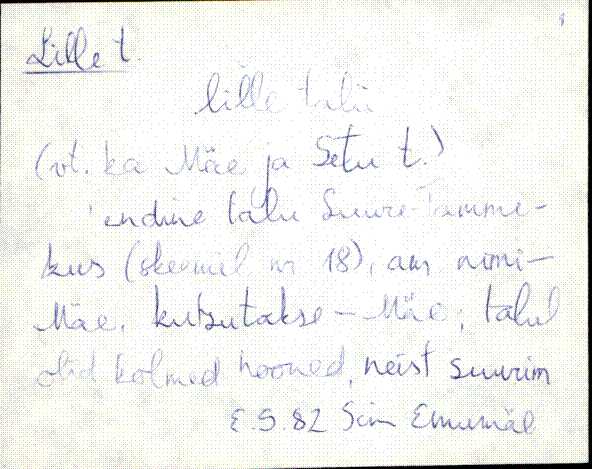 Lille t.
lille talu
(vt. ka Mäe ja Setu t.)
endine talu Suure-Tamme-
kus (skeemil nr 18), am nimi-
Mäe. kutsutakse - Mäe; talul
olid kolmed hooned, neist suurim
E.S. 82 Sim Emumäe